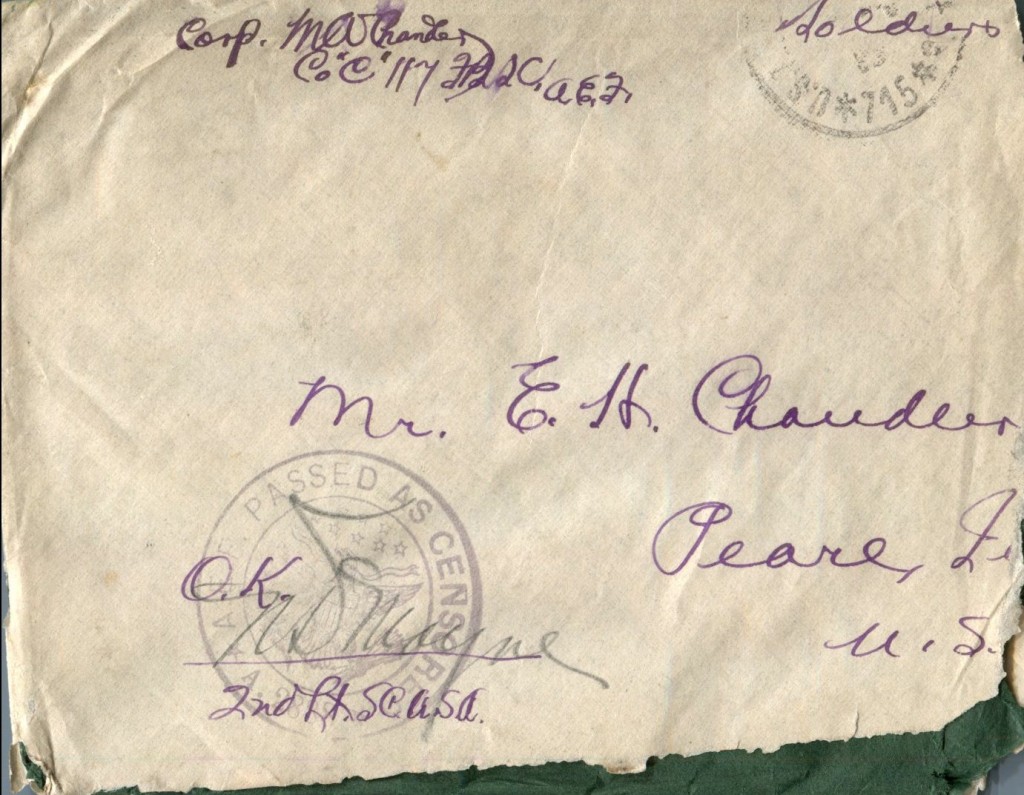 Corp. M W Chandler
Co "C" 117 F.B. S.C. A.E.F.
Soldiers
U.S.
*715*
Mr. E. H. Chandler
Pearl,
U. S.
A.E.F. PASSED AS CENSORED
O.K.
2nd Lt. S.C. U.S.A.